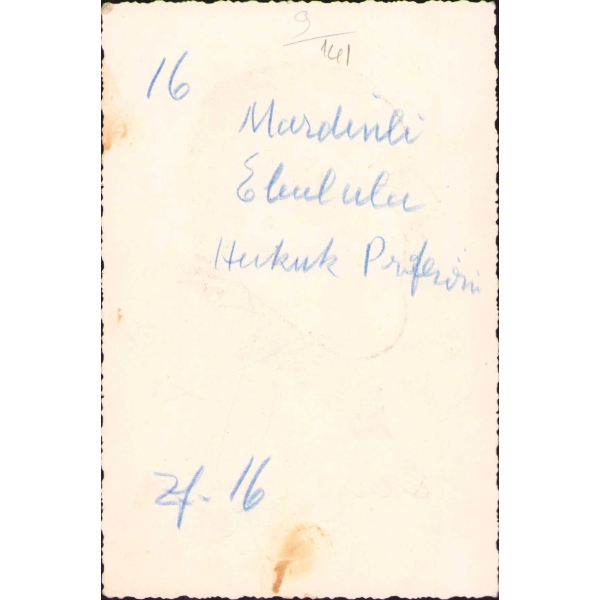 9/141
16
Mardinli
Ebulula
Hukuk Profesörü
Zf. 16